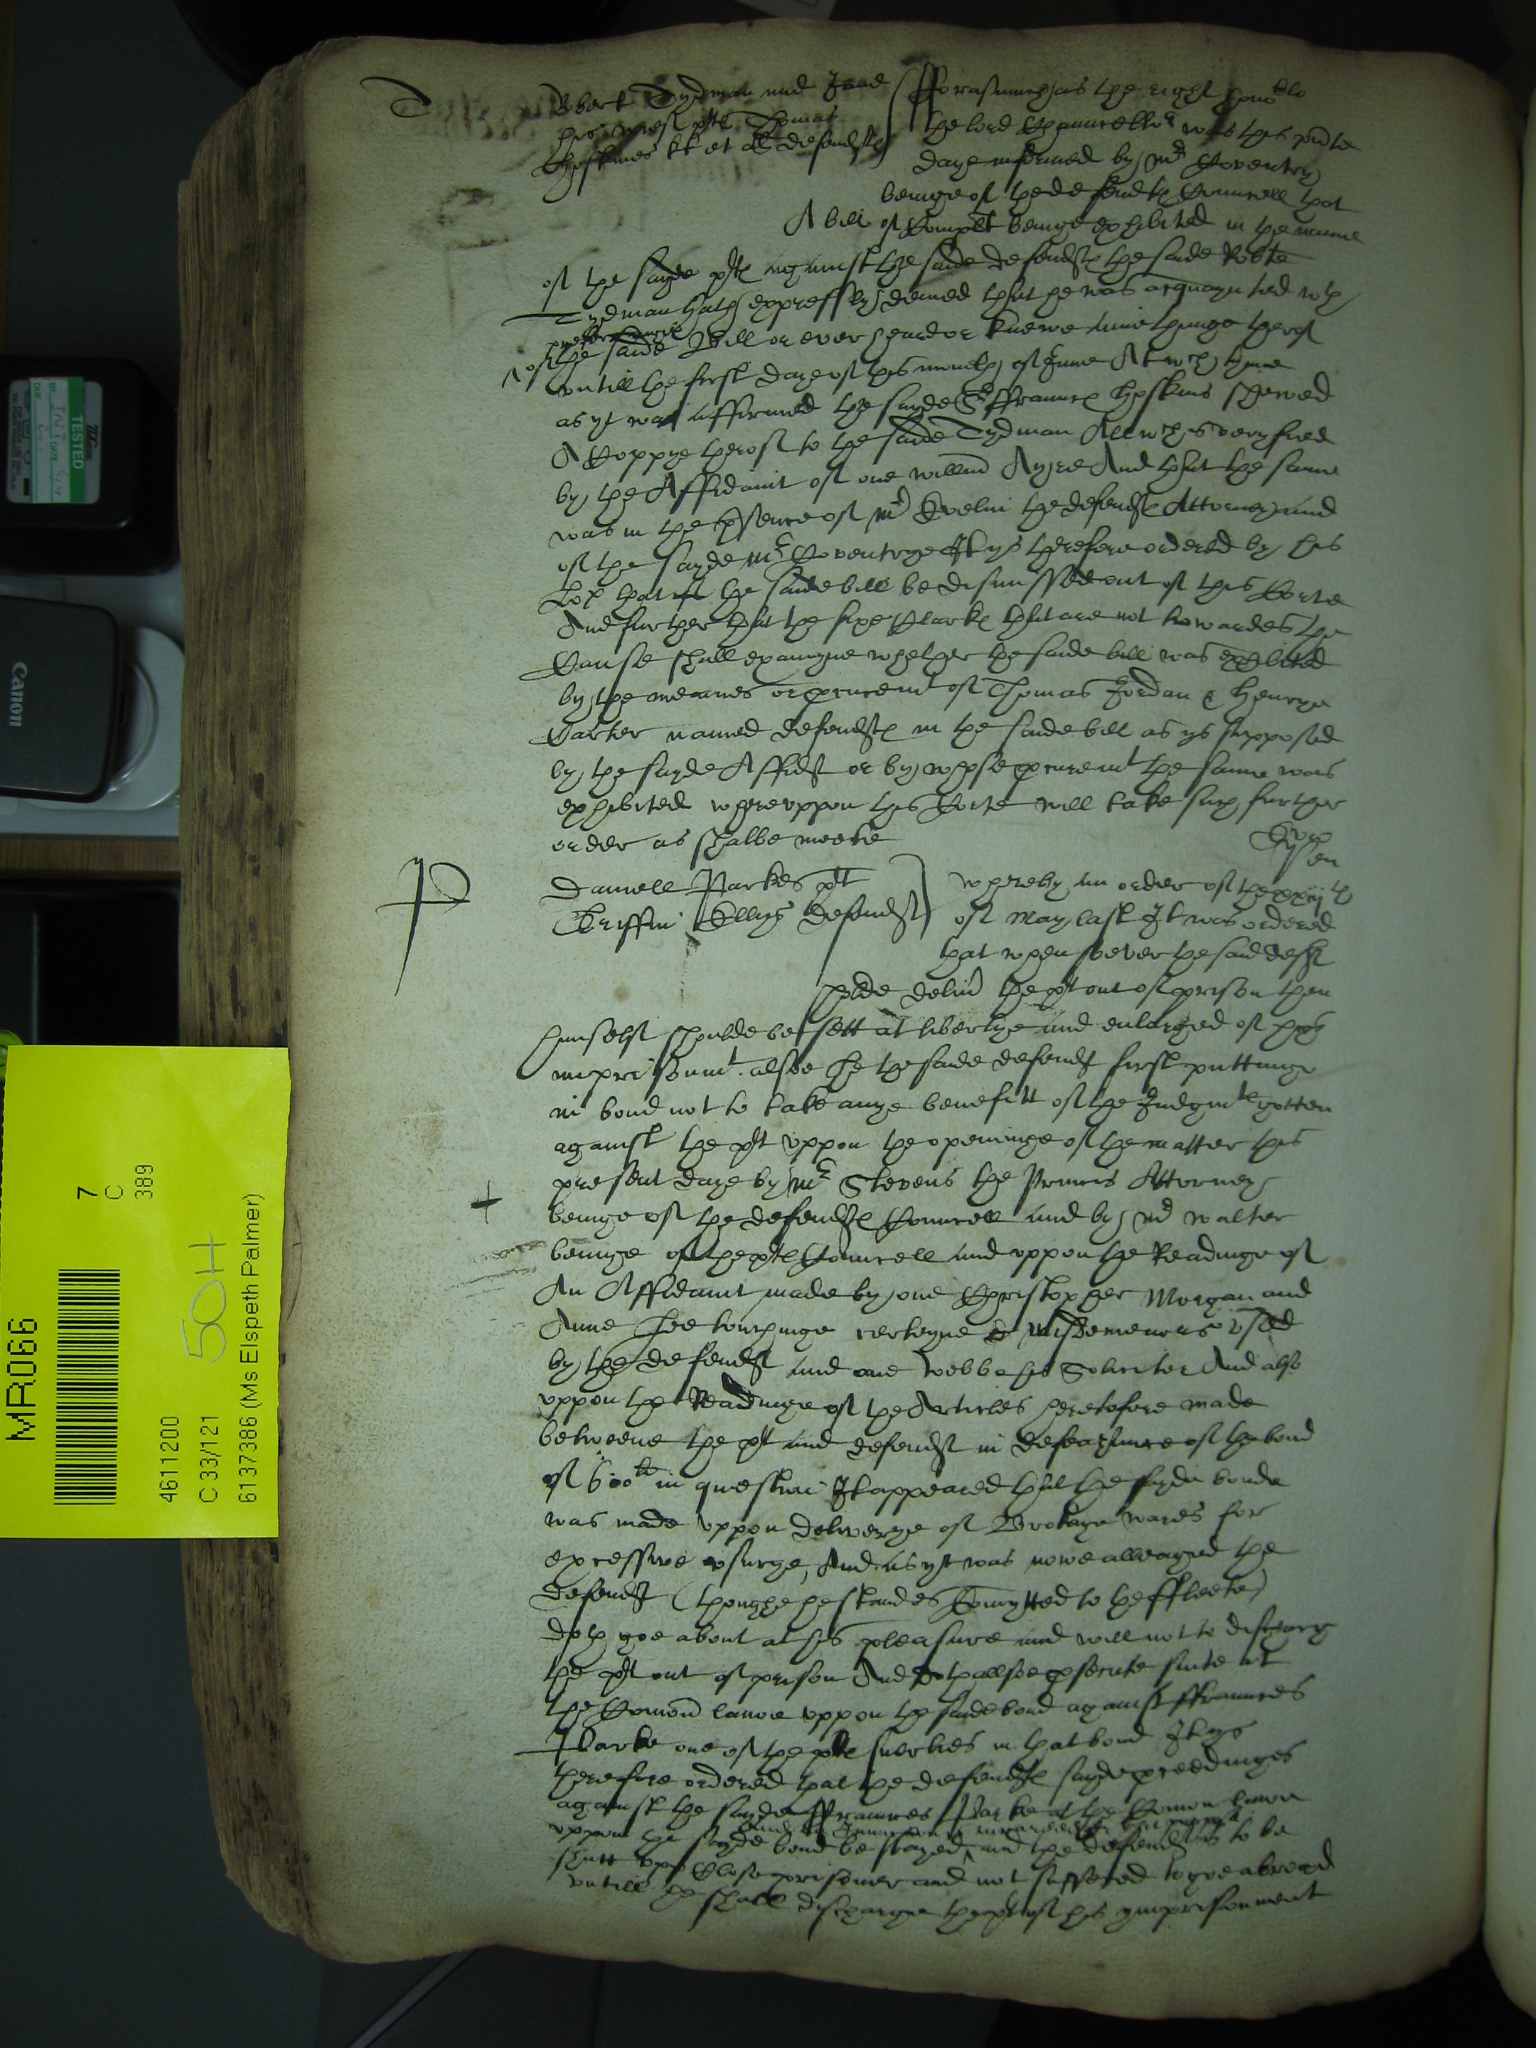 T
Robert Tydman and Jane
his wief plts Thomas
Hoskines kt et al defendts
Forasmuch as the right honoble
the lord Chauncellor was this pnte
daye informed by Mr Coventry
beinge of the defendts Councell that
A bill of Complt beinge exhibited in the name
of the sayde plts against the saide defendts the saide Robte
Tydman hath expressly denied that he was acquaynted wth
of the saide Bill or ever heard or knewe anie thinge therof
untill the first daye of this moneth of June At wch tyme
as yt was affirmed the sayde Sr Fraunces Hoskins shewed
A Coppye therof to the saide Tydman All wch is veryfied
by the Affidavit of one Willm Ayre And that the same
was in the psence of Mr Evelin the defendts Attorney and
of the sayde Mr Coventrye It ys therefore ordered by his
Lop that the saide bill be dismissed out of this Corte
And further that the sixe Clarkes that are not towardes the
Cause shall examyne whether the saide bill was exhibited
by the meanes or procuremt of Thomas Jordan & Henrye
Carter named defendts in the saide bill as ys supposed
by the sayde Affidt or by whose procuremt the same was
exhibited whereuppon this Corte will take such further
order as shalbe meete
P
Daniell Parkes plt
Griffin Ellys defendt
Whereby an order of the xxiijth
of May last It was ordered
that whensoever the said deft
sholde deliver the plt out of prison then
himself shoulde be sett at libertye and enlarged of his
imprisonmt alsoe he the saide defendt first puttinge
in bond not to take anye benefitt of the Judgmte gotten
against the plt uppon the openinge of the matter this
present daye by Mr Stevens the Princes Attorney
beinge of the defendts Councell and by Mr Walter
beinge of the plts Councell and uppon the Readinge of
An Affidavit made by one Christopher Morgan and
Anne Lee touchinge certeyne misdemenors used
by the defendt and one Webbe his Soliciter And also
uppon the Readinge of the Articles heretofore made
betweene the plt and defendt in defeazance of the bond
of 600li in question It appeared that the sayde bonde
was made uppon deliverye of Brokage wares for
excessive usurye, And as yt was nowe alleaged the
defendt (thoughe he standes Comytted to the Fleete)
doth goe about at his pleasure and will not to discharg
the plt out of prison And doth allsoe psecute suite at
the Comon lawe uppon the saide bond against Fraunces
Parke one of the plts suerties in that bond It ys
therefore ordered that the defendts sayde pceedinges
against the sayde Fraunces Parke at the Comon lawe
uppon the sayde bond be stayed and the defendt is to be
shutt upp Close prisoner and not suffered to goe abroad
untill he shall discharge the plt of his ymprisonment
MR066
7
C
389
4611200
C 33/121
50H
6137386 (Ms Elspeth Palmer)
TESTED
Canon